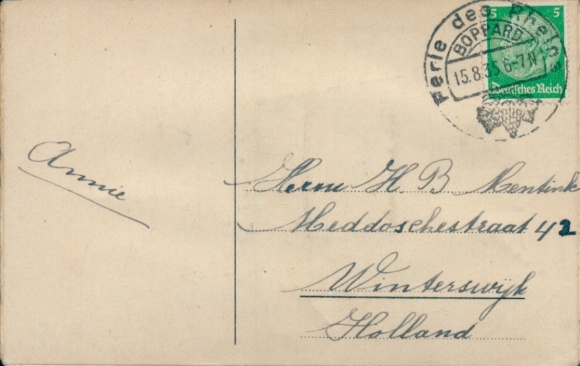 Perle des Rheins
BOPPARD
15.8.35 6-7N
5 5
Deutsches Reich
Annie
Herrn H. B. Mentink
Meddoschestraat 42
Winterswijk
Holland